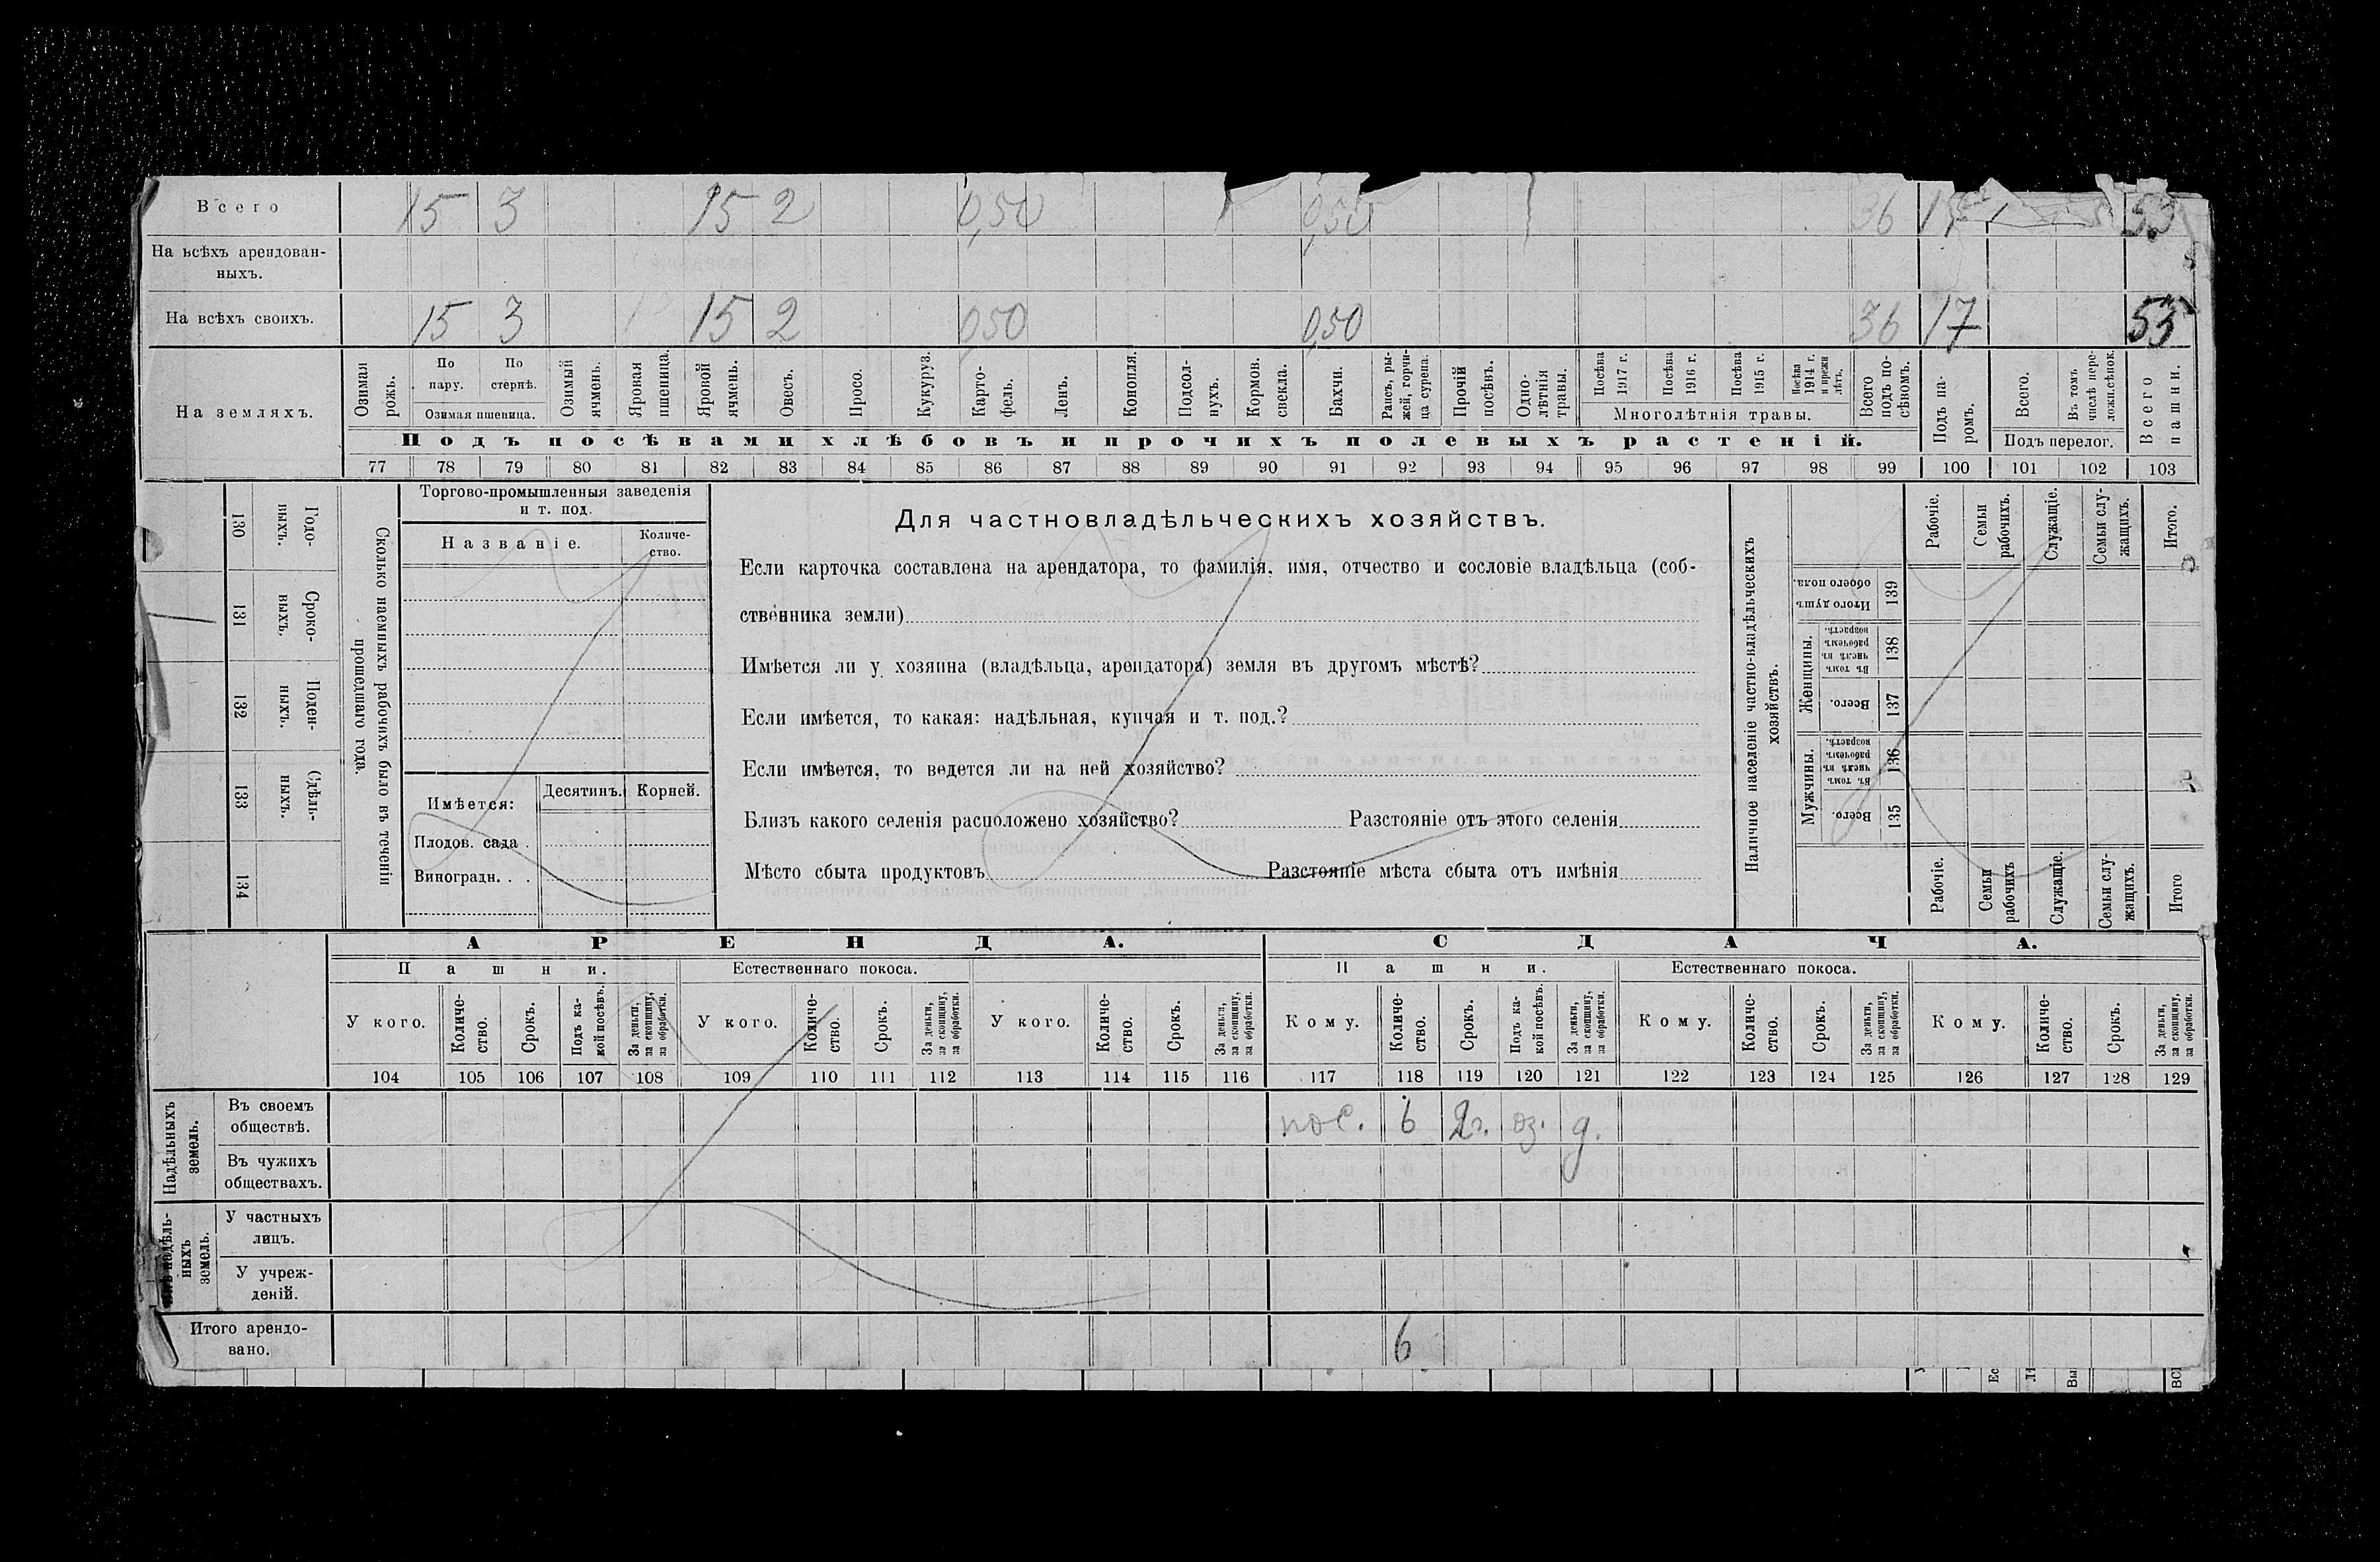 Всего 15 3 15 2 0,50 0,50 36 17 53
На всѣхъ арендован-
ныхъ.
На всѣхъ своихъ. 15 3 15 2 0,50 0,50 36 17 53
На земляхъ.
Озимая рожь.
По пару.
По стернѣ.
Озимая пшеница.
Озимый ячмень.
Яровая пшеница.
Яровой ячмень.
Овесъ.
Просо.
Кукуруз.
Карто-
фель.
Ленъ.
Конопля.
Подсол-
нухъ.
Кормов. свекла.
Бахчи.
Рапсъ, ры-
жей, горчи-
ца сурепа.
Прочій посѣвъ.
Одно-
лѣтнія травы.
Посѣва 1917 г.
Посѣва 1916 г.
Посѣва 1915 г.
Посѣва 1914 г. и прежн лѣтъ.
Многолѣтнія травы.
Всего подъ по-
сѣвомъ.
Подъ па-
ромъ.
Всего.
Въ томъ числѣ пере-
ложн.сѣнок.
Подъ перелог.
Всего пашни.
Подъ посѣвами хлѣбовъ и прочихъ полевыхъ растеній.
77 78 79 80 81 82 83 84 85 86 87 88 89 90 91 92 93 94 95 96 97 98 99 100 101 102 103
130 Годо-
выхъ.
131 Сроко-
выхъ.
132 Поден-
ныхъ.
133 Сдѣль-
ныхъ.
134
Сколько наемныхъ рабочихъ было въ теченіи
прошедшаго года.
Торгово-промышленныя заведенія
и т. под.
Названіе.
Количе-
ство.
Имѣется: Десятинъ. Корней.
Плодов. сада .
Виноградн. . .
Для частновладѣльческихъ хозяйствъ.
Если карточка составлена на арендатора, то фамилія, имя, отчество и сословіе владѣльца (соб-
ственника земли)
Имѣется ли у хозяина (владѣльца, арендатора) земля въ другомъ мѣстѣ?
Если имѣется, то какая: надѣльная, купчая и т. под.?
Если имѣется, то ведется ли на ней хозяйство?
Близъ какого селенія расположено хозяйство? Разстояніе отъ этого селенія
Мѣсто сбыта продуктовъ Разстояніе мѣста сбыта отъ имѣнія
Наличное населеніе частно-владѣльческихъ
хозяйствъ.
Рабочіе.
Семьи рабочихъ.
Служащіе.
Семьи слу-
жащихъ.
Итого.
Итого душъ обоего пола. 139
Женщины.
Въ томъ числѣ въ рабочемъ возрастѣ. 138
Всего. 137
Мужчины.
Въ томъ числѣ въ рабочемъ возрастѣ. 136
Всего. 135
Рабочіе.
Семьи рабочихъ
Служащіе.
Семьи слу-
жащихъ.
Итого
АРЕНДА. СДАЧА.
Пашни. Естественнаго покоса. Пашни. Естественнаго покоса.
У кого.
Количе-
ство.
Срокъ.
Подъ ка-
кой посѣвъ.
За деньги, за скопщину, за обработки.
У кого.
Количе-
ство.
Срокъ.
За деньги, за скопщину, за обработки.
У кого.
Количе-
ство.
Срокъ.
За деньги, за скопщину, за обработки.
Кому.
Количе-
ство.
Срокъ.
Подъ ка-
кой посѣвъ.
За деньги, за скопщину, за обработки.
Кому.
Количе-
ство.
Срокъ.
За деньги, за скопщину, за обработки.
Кому.
Количе-
ство.
Срокъ.
За деньги, за скопщину, за обработки.
104 105 106 107 108 109 110 111 112 113 114 115 116 117 118 119 120 121 122 123 124 125 126 127 128 129
Надѣльныхъ
земель.
Въ своемъ
обществѣ. пос. 6 2г. оз. д.
Въ чужихъ
обществахъ.
надѣль-
ныхъ
земель.
У частныхъ
лицъ.
У учреж-
деній.
Итого арендо-
вано. 6